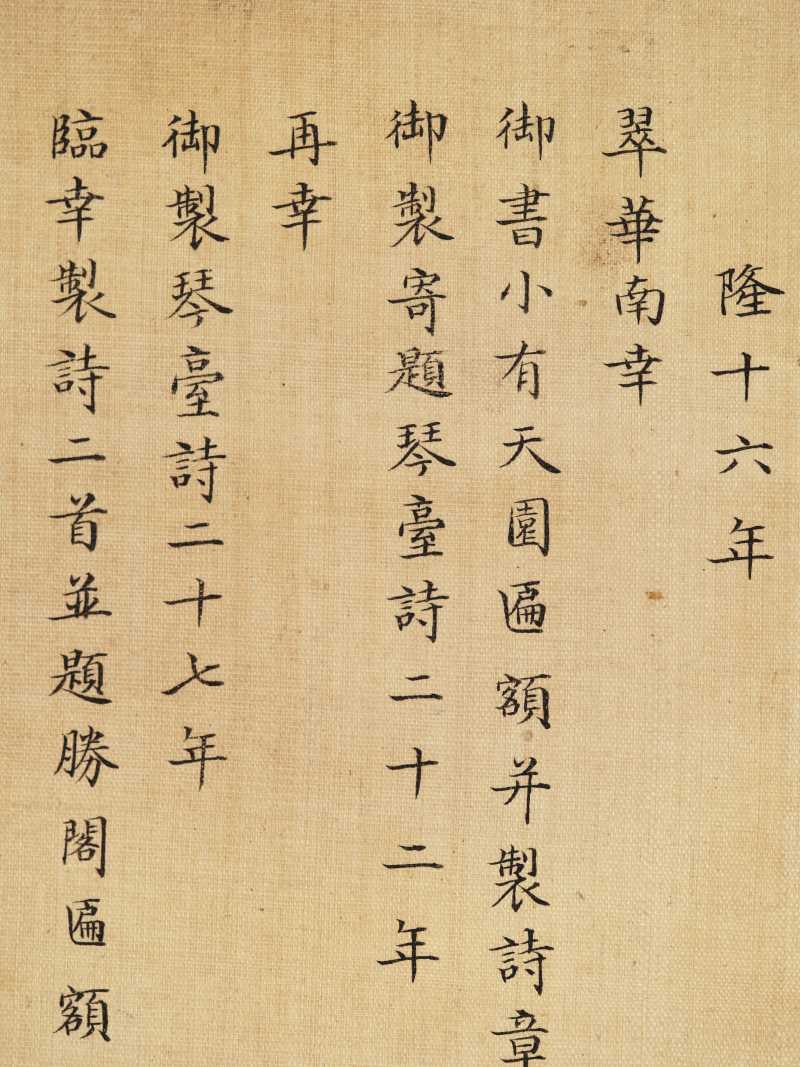 隆十六年
翠華南幸
御書小有天園匾額并製詩章
御製寄題琴臺詩二十二年
再幸
御製琴臺詩二十七年
臨幸製詩二首並題勝閣匾額